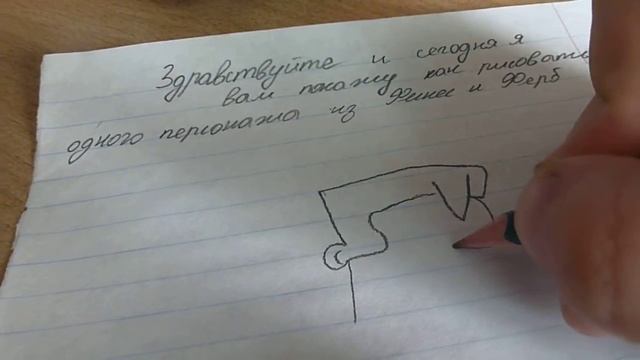 Здравствуйте и сегодня я
вам покажу как рисовать
одного персонажа из Финес и Ферб